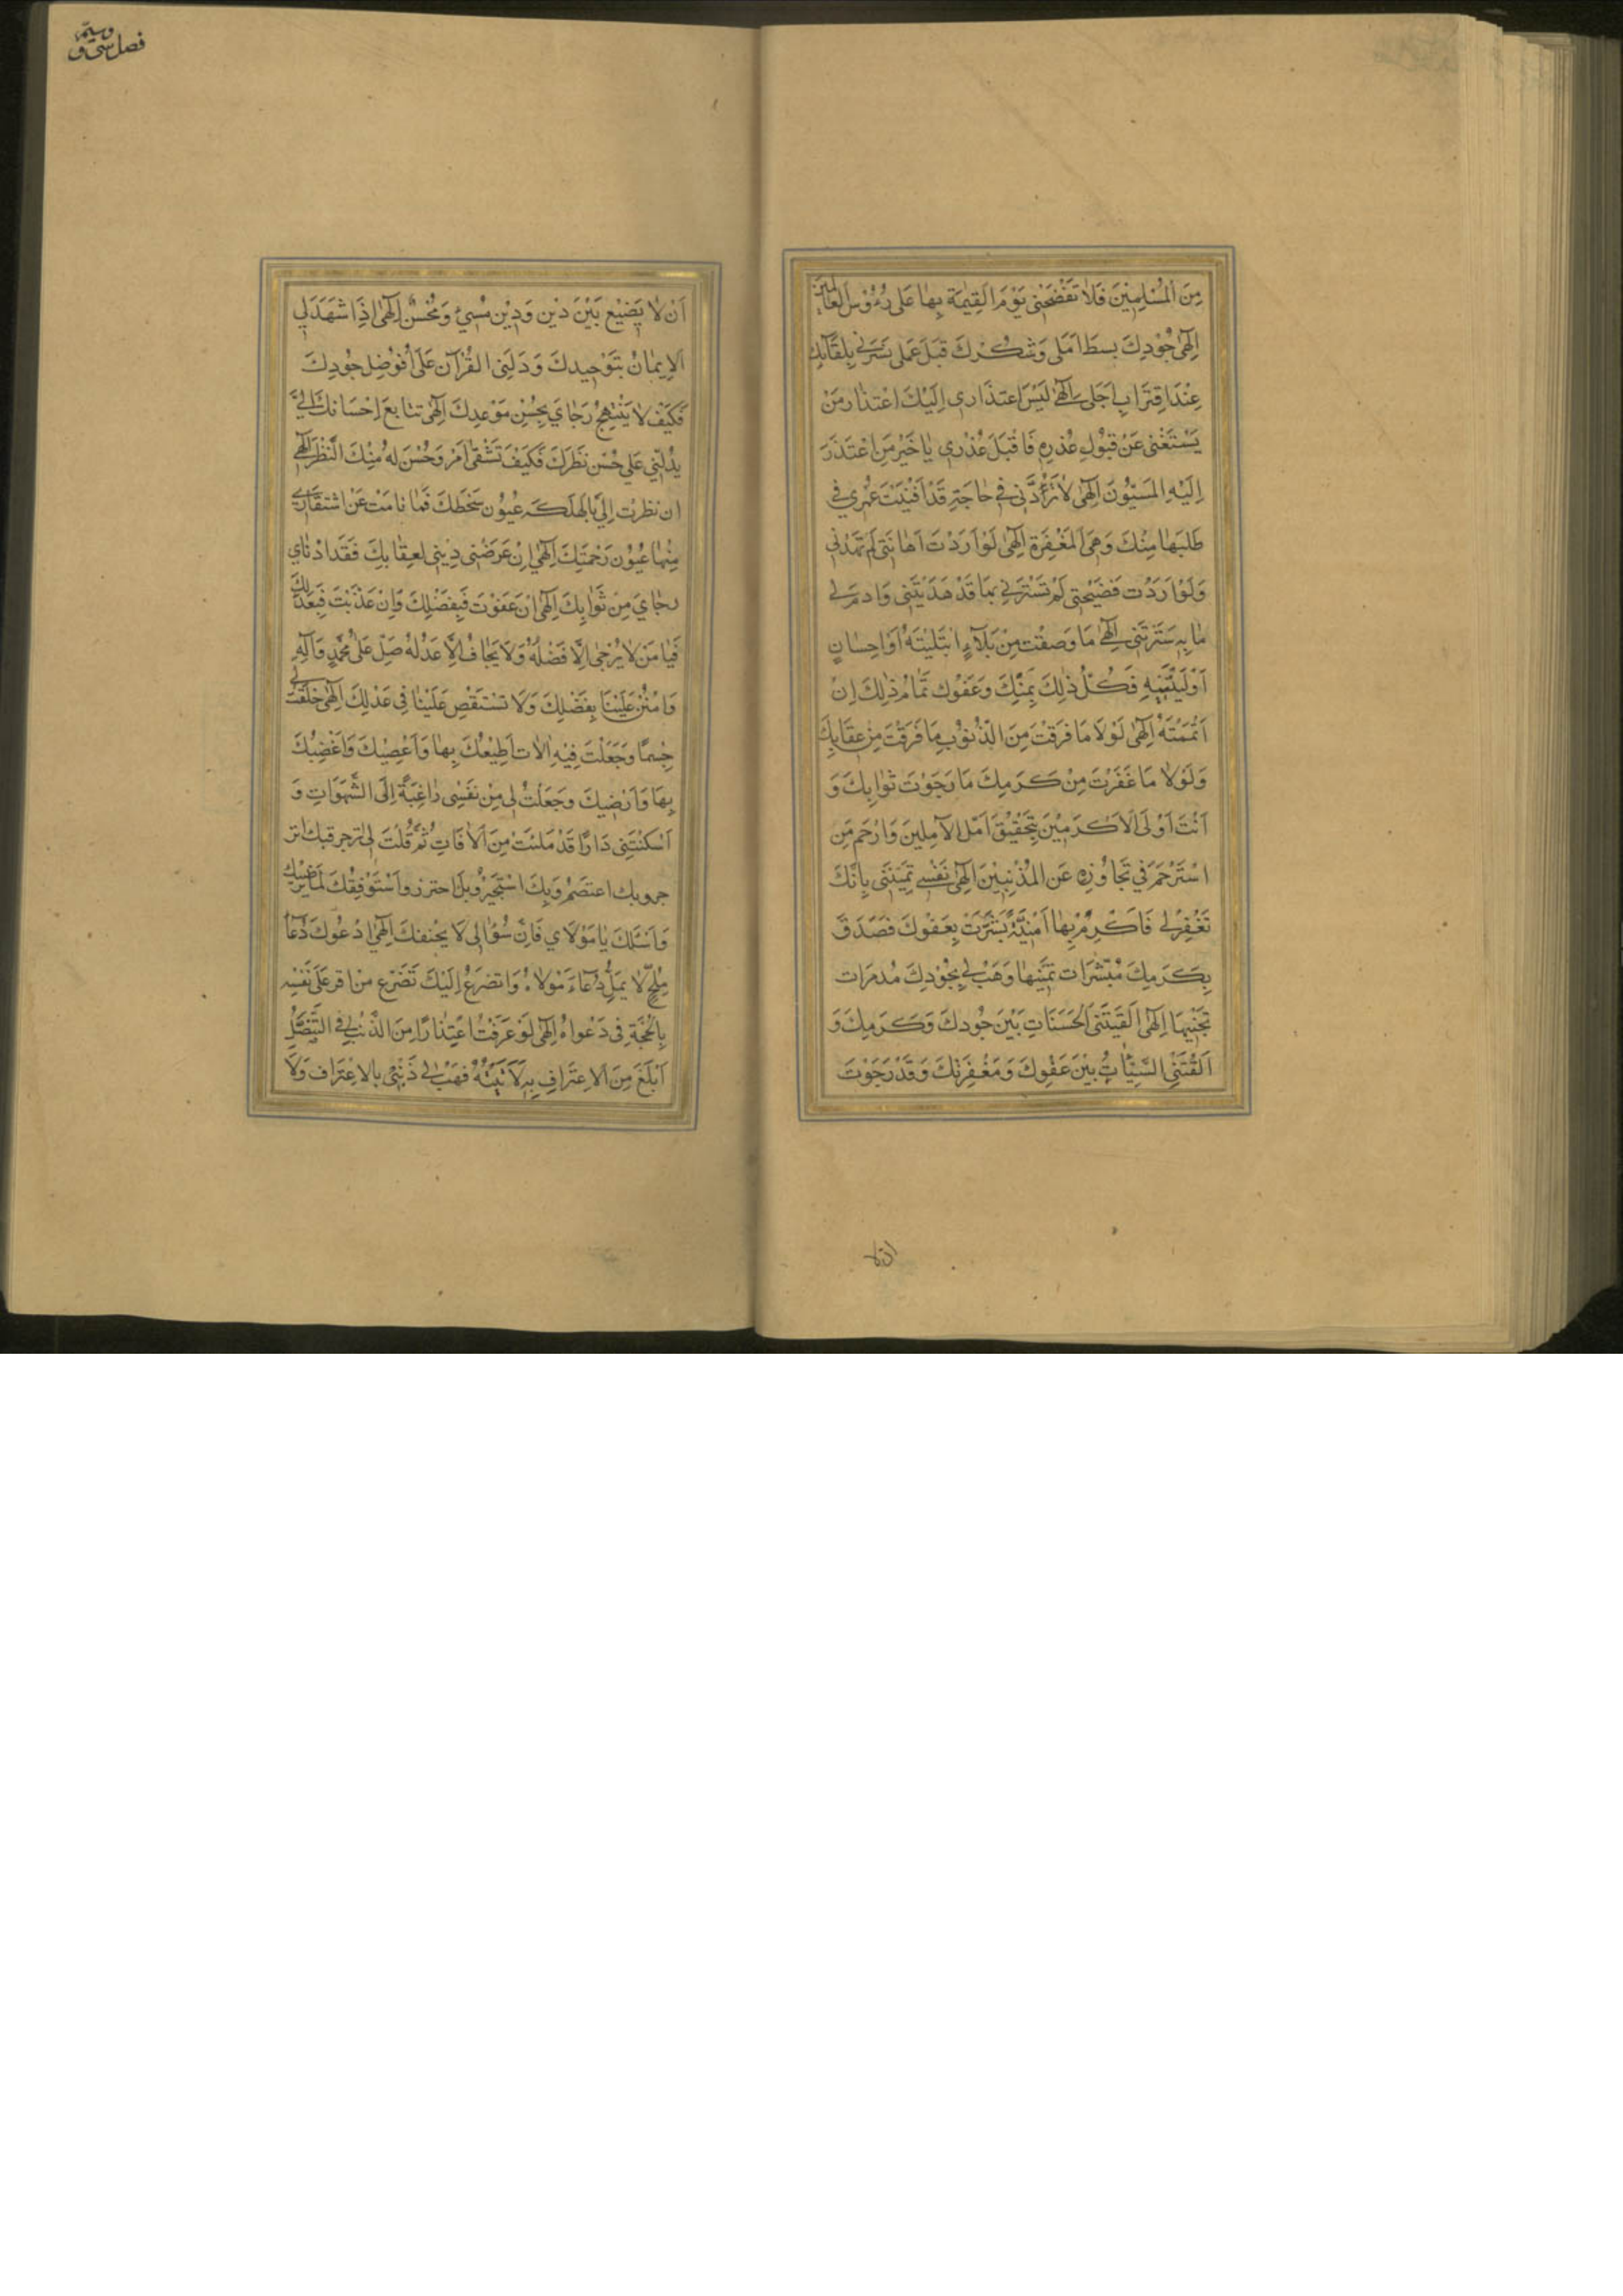 مِنَ الْمُسْلِمِيْنَ فَلَا تَفْضَحْنِى يَوْمَ الْقِيٰمَةِ بِهَا عَلٰى رُءُوْسِ الْعَالَمِيْنَ
اِلٰهِى جُوْدِكَ بسطَ اَمَلِى وَشُكْرِكَ قَبْلَ عَمَلِى بَسَرَنِى بِلِقَآئِكَ
عِنْدَ اقْتِرَابِ اَجَلِى اِلٰهِى لَيْسَ اعتذَارِى اِلَيْكَ اعْتِذَارَ مَنْ
يَسْتَغْنِى عَنْ قَبُوْلِ عُذْرِهِ فَاقْبَلْ عُذْرِى يَا خَيْرَ مَنِ اعْتَذَرَ
اِلَيْهِ الْمُسِيْئُوْنَ اِلٰهِى لَا تَرُدَّنِى فِى حَاجَتِهِ قَدْ اَفْنَيْتُ عُمْرِي فِى
طَلَبِهَا مِنْكَ وَهِىَ الْمَغْفِرَة اِلٰهِى لَوْ اَرَدْتَ اَهَانَتِى لَمْ تَهْدِنِى
وَلَوْ اَرَدْت فَضِيْحَتِى لَمْ تَسْتُرْنِى بِمَا قَدْ هَدَيْتَنِى وَادم لِى
مَا بِهِ سَتَرْتَنِى اِلٰهِى مَا وَصَفْت مِنْ بَلَآءٍ ابْتَلَيْتَهُ اَوْ اِحْسَانٍ
اَوْلَيْتَنِيْهِ فَكُلُّ ذٰلِكَ بِمَنِّكَ وَعَفْوُك تَمَامُ ذٰلِكَ اِنْ
اَتْمَمْتَهُ اِلٰهِى لَوْلَا مَا فَرَقْتُ مِنَ الذُّنُوْبِ مَا فَرَقْتُ مِنْ عِقَابِكَ
وَلَوْلَا مَا غَفَرْتَ مِنْ كَرَمِكَ مَا رَجَوْتُ ثَوَابِكَ وَ
اَنْتَ اَوْلَى الْاَكْرَمِيْنَ بِتَحْقِيْقِ اَمَلِ الآمِلِينَ وَارْحَم مَنِ
اسْتَرْحَمَ فِى تَجَاوُزِهِ عَنِ الْمُذْنِبِيْنَ اِلٰهِى نَفْسِى تَمَنّنِى بِاَنَّكَ
تَغْفِرُ لِى فَاَكْرِمْ بِهَا اُمْنِيَّةً بَشَّرَتْ بِعَفْوِكَ فَصَدِّقْ
بِكَرَمِكَ مُبَشِّرَات تَمَنّيْهَا وَهَبْ لِى بِجُوْدِكَ مُدمرَات
تَجَنّيْهَا اِلٰهِى اَلْقَتْنَى الْحَسَنَاتِ بَيْنَ جُوْدِكَ وَكَرَمِكَ وَ
اَلْقَتْنِى السَّيِّئَاتُ بَيْنَ عَفْوِكَ وَمَغْفِرَتِكَ وَقَدْ رَجَوْتُ
وسيم
فصل سى و
اَنْ لَا يَضِيْعَ بَيْنَ ذَيْنِ وَذَيْنِ مُسِيئٌ وَمُحْسِنٌ اِلٰهِى اِذَا شَهِدَ لِي
الاِيمَانُ بِتَوْحِيدِكَ وَدَلَّنِى الْقُرْآنُ عَلَى اَفْوضِلِ جُوْدِكَ
فَكَيْفَ لَا يَبْتَهِجُ رَجَاى بِحُسْنِ مَوْعِدِكَ اِلٰهِى تتابع اِحْسَانك اِلَىَّ
يدُلّنِى عَلى حُسْنِ نَظَرِكَ فَكَيْفَ تَشْقَى امر وَحَسُنَ لَهُ مِنْكَ النَّظَرُ اِلٰهِى
ان نظرت اِلَىَّ بِالْهلكه عُيُوْن سَخَطِكَ فَمَا نَامَتْ عَنْ اسْتنقَاذِى
مِنْهَا عُيُوْنُ رَحْمَتِكَ اِلٰهِى اِنْ عَرَضَنِى ذَنْبِى لِعِقَابِكَ فَقَدْ ادْنَاى
رجَاى مِنْ ثَوَابِكَ اِلٰهِى اِنْ عَفَوْتَ فَبِفَضْلِكَ وَاِنْ عَذّبْتَ فَبِعَدْلِكَ
فَيَا مَنْ لَا يُرْجٰى اِلَّا فَضْلُهُ وَلَا يَخَافُ اِلَّا عَدْلُهُ صَلِّ عَلٰى مُحَمَّدٍ وَآلِهِ
وَامْنُنْ عَلَيْنَا بِفَضْلِكَ وَلَا تَسْتَقْصِ عَلَيْنَا فِى عَدْلِكَ اِلٰهِى خَلَقْتَ لِى
جِسْمًا وَجَعَلْتَ فِيْهِ اٰلَات اُطِيْعُكَ بِهَا وَاَعْصِيْكَ وَاُغْضِبُكَ
بِهَا وَاَرْضِيكَ وَجَعَلْتَ لِى مِنْ نَفْسِى دَاعِيَةً اِلَى الشَّهَوَاتِ وَ
اَسْكَنْتَنِى دَارًا قَدْ مَلِئَتْ مِنَ الْآفَاتِ ثُمَّ قُلْتَ لِى انزجر فبك انز
جروبك اعتصم وَبِكَ اسْتَجِيْرُ وبك احترز واَسْتَوْفِقُكَ لِمَا يُرْضِيْكَ
وَاَسْئَلُكَ يَا مَوْلَاى فَاِنَّ سُؤَالِى لَا يحفيك اِلٰهِى ادْعُوْكَ دُعَآءَ
مُلِحٍّ لَا يَمَلُّ دُعَآءَ مَوْلَاهُ وَاتضرعُ اِلَيْكَ تَضَرُّع من اقر عَلَى نَفْسِه
بِالْحُجَّةِ فِى دَعْواهُ اِلٰهِى لَوْ عَرَفْتُ اعْتِذَارًا مِنَ الذَّنْبِ فِى التَّنَصُّلِ
اَبْلَغَ مِنَ الاعتِرَافِ بِهِ لَاَتَيْتُهُ فَهَبْ لِى ذَنْبِى بالاعْتِرَاف وَلَا